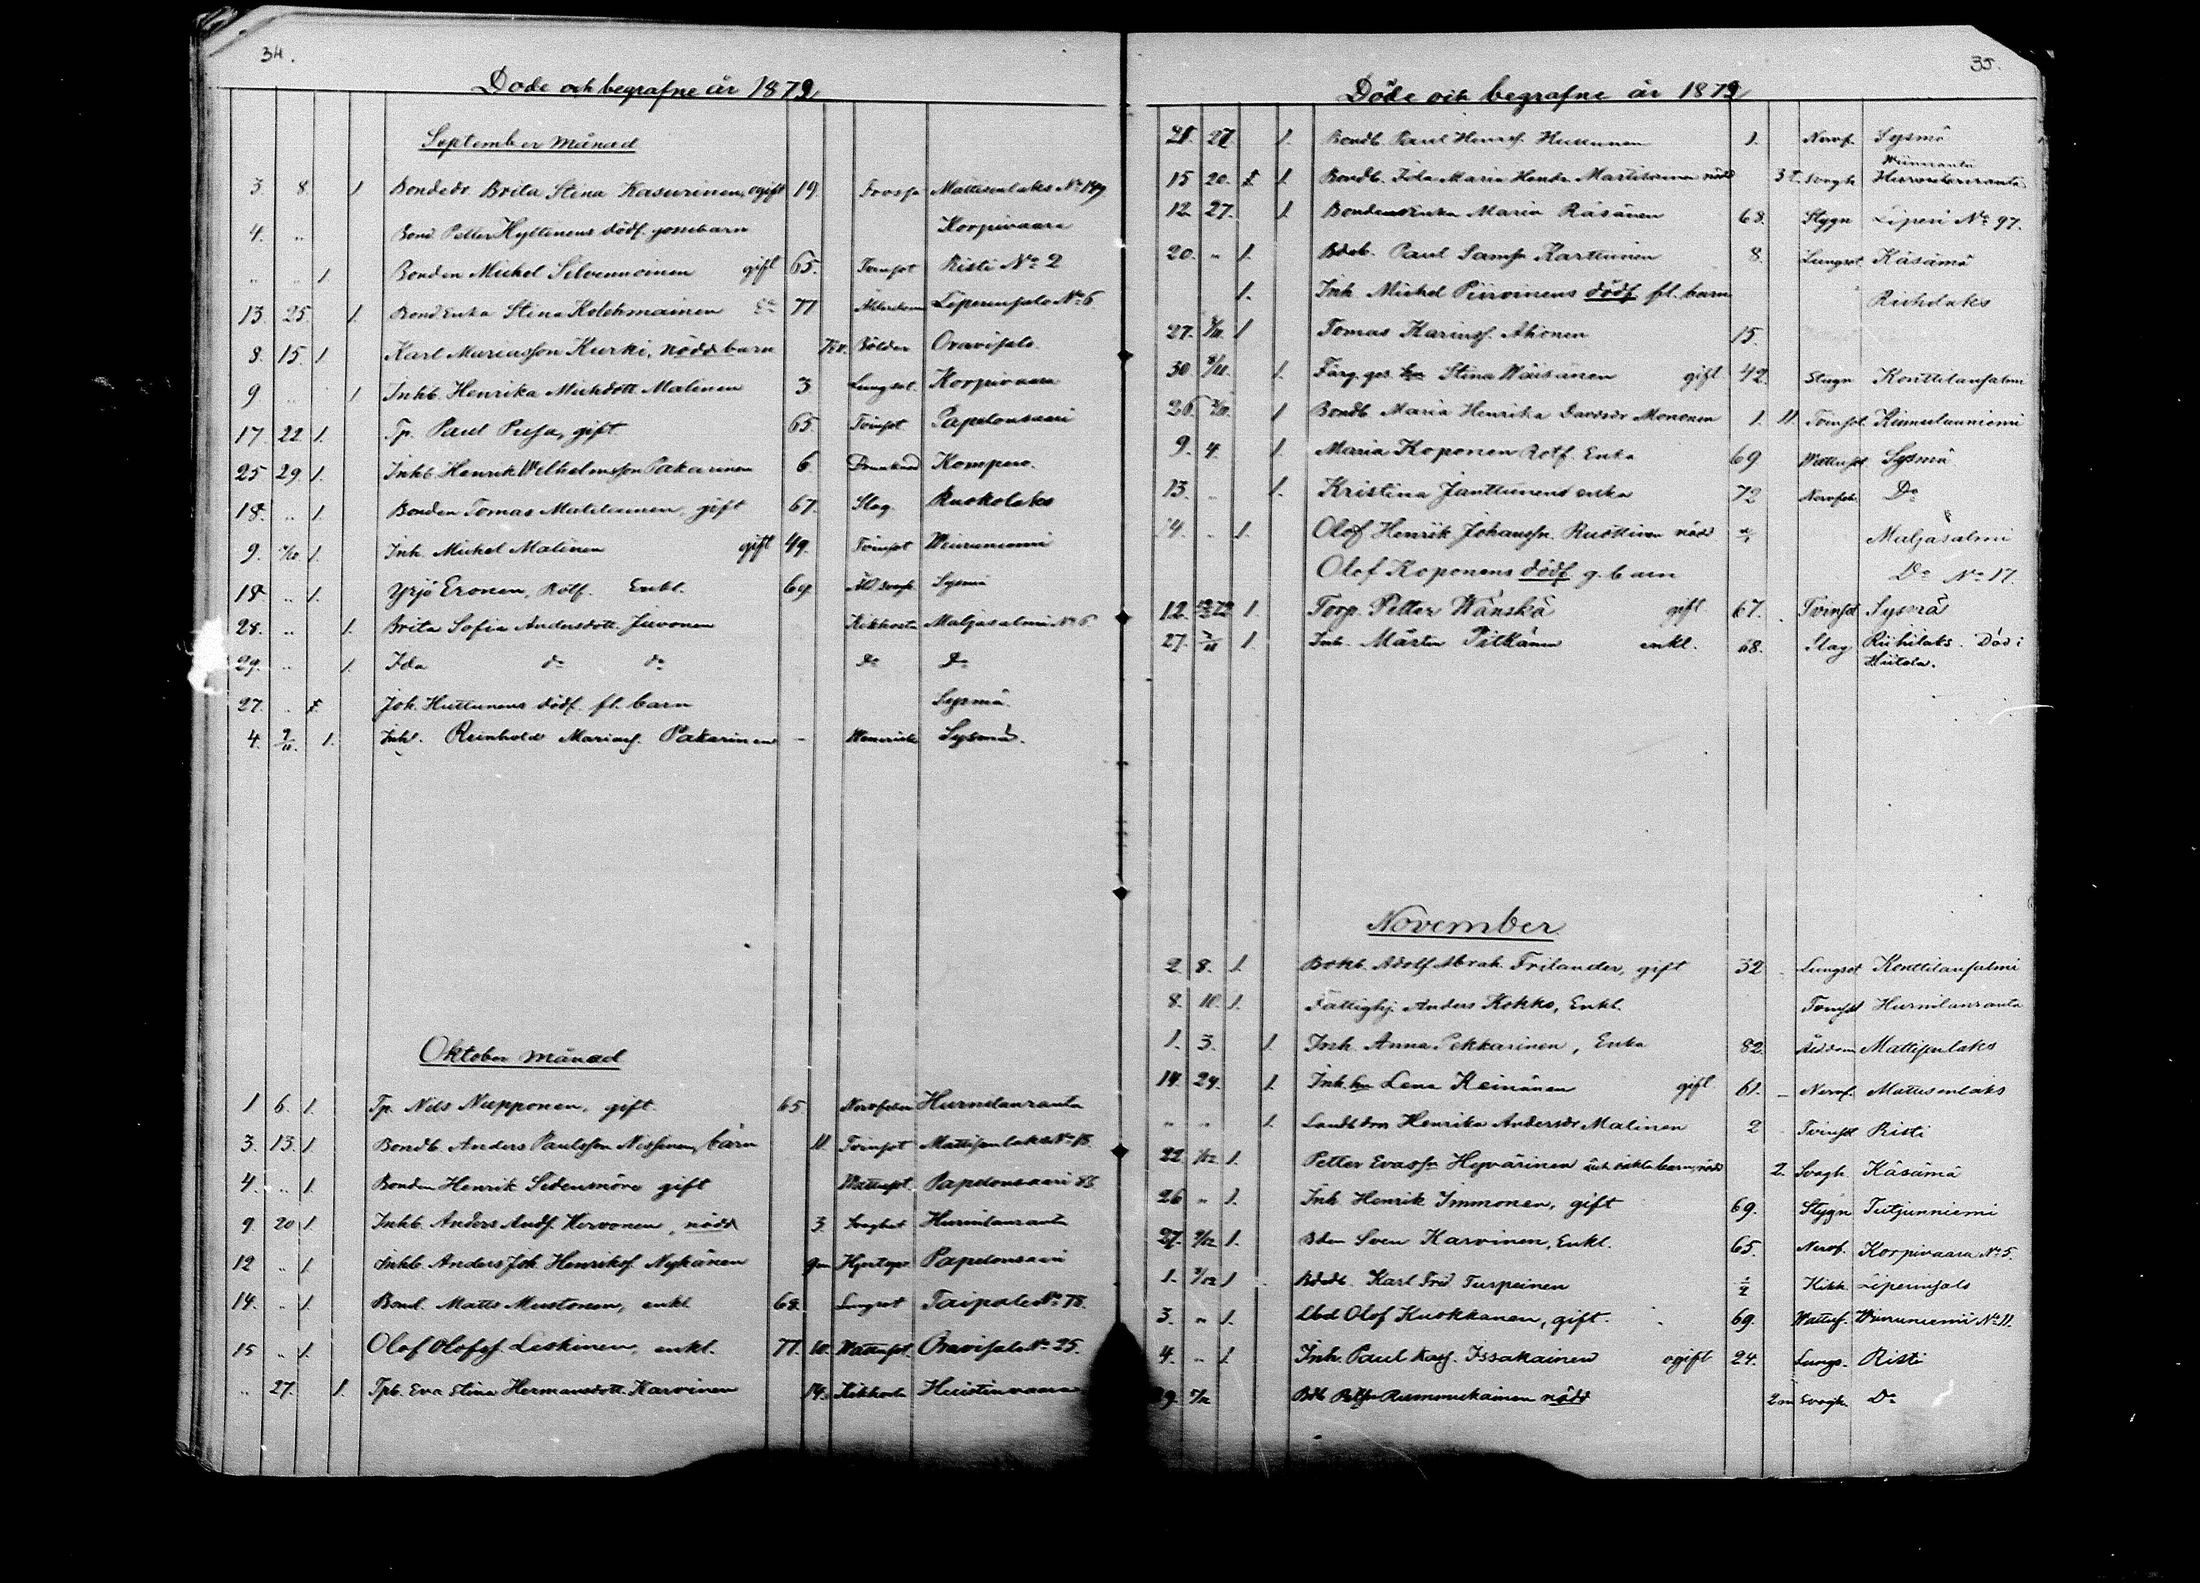 34.
Döde och begrafne år 1879
September månad
3 8 1 Bondedr Brita Stina Kasurinen, ogift 19 Frossa Mattisenlaks No 149
4. " Bond Petter Hyttinens dödf. gossebarn Korpivaara
" " 1 Bonden Michel Silvennoinen gift 65. Tvinsot Risti No 2
13. 25. 1. Bond Enka Stina Kolehmainen Do 77 Liperinsalo No 6
8. 15. 1. Karl Mariasson Kurki, nöddbarn Bölder Oravisalo.
9 " 1 Inhb Henrika Michdott Malinen 3 Lungsot. Korpivaara
17 22 1. Tp. Paul Pusa, gift 65. Tvinsot Papelonsaari
25 29 1. Inhb Henrik Wilhelmsson Pakarinen 6 Drunknad Kompero.
18. " 1. Bonden Tomas Matilainen, gift 67. Slag Kuokolaks
9. 1. Inh. Michel Malinen gift 49. Tvinsot Wiiruniemi
18 " 1. Yrjö Eronen, Rotf. Enkl. 69 Sysmä
28. " 1. Brita Sofia Andersdott. Juvonen Kikhosta Maljasalmi No 6
29. " 1. Ida do do Do Do
27. " 1. Joh. Huttunens dödf. fl. barn Sysmä
4. 1. Inh. Reinhold Mariaes. Pakarinen - Sysmä.
Oktober månad
1 6. 1. Tp. Nils Nupponen, gift. 65 Hurnilanranta
3. 13. 1 Bondb. Anders Paulsson Nissinen, barn 11 Tvinsot Mattisenlaks No 18
4. " 1. Bonden Henrik Sidensnöre gift Wattusot. Papelonsaari
9 20 1. Inhb. Anders Andf. Hervonen, nödd 3. Svaghet Hurnilanranta
12 " 1 Inhb. Anders Joh Henriksf. Nykänen 9m Papelonsaari
14. " 1. Bond. Matts Mustonen, enkl 68. Lungsot Taipale No 78.
15 " 1. Olof Olofsf. Leskinen, enkl. 77. 10. Wattusot. Oravisalo No 25.
" 27. 1. Tpb. Eva Stina Hermansdott. Karvinen 14. Kikhosta
35.
Döde och begrafne år 1879
21. 27. 1. Bondb. Paul Henrsf. Huttunen 1. Nervf. Sysmä
15 20. 1. 1. Bondb. Ida Maria Henrdr Martikainen nödd Svagh.
12 27. 1. Bondeenka Maria Räsänen 68. Stygn Liperi No 97.
20. " 1. Bdeb. Paul Samsn Karttunen 8. Lungsot Käsämä
1. Inh Michel Piiroinens dödf fl. barn Riihilaks
27. 1 Tomas Karinsf. Ahonen 15.
30 1. Stina Wäisänen gift 42. Stygn Konttilansalmi
26. 1 Bondb Maria Henrika Davidsdr Mononen 1. 11 Tvinsot
9. 4. 1 Maria Koponen Rotf. Enka 69 Wattusot Sysmä
13. " 1. Kristina Janttunens enka 72 Do
14. " 1. Olof Henrik Johanssn. Ruottinen nödd Maljasalmi
Olof Koponens dödf g. barn Do No 17.
12. 1. Torp. Petter Wänskä gift 67. Tvinsot Sysmä
27. 1. Inh. Mårten Pitkänen enkl. 68. Slag Riihilaks. Död i
Hiitola.
November
2 8. 1. Bokh. Adolf Abrah. Frilander, gift 32 Lungsot Konttilansalmi
8. 10. 1. Fattighj. Anders Kokko, Enkl. Tvinsot Hurnilanranta
1. 3. 1. Inh. Anna Pekkarinen, Enka 82. Mattisenlaks
14. 24. 1. Inh. hu Lena Keinänen gift 61. Nervf. Mattisenlaks
" " 1. Henrika Andersdr Malinen 2 Tvinsot Risti
22 1/12 1. Petter Evassn Hyvärinen barn, nödd 2. Svagh Käsämä
26 " 1. Inh Henrik Immonen, gift 69. Stygn Tutjunniemi
27. 1. Bden Sven Karvinen, Enkl. 65. Nervf. Korpivaara No 5.
1. 1. Bdeb. Karl Fred Turpeinen Kikh. Liperinsalo
3. " 1. Lbd Olof Kuokkanen, gift. 69. Wattus. Wiiruniemi No 11.
4. " 1. Inh. Paul Kasf. Issakainen ogift 24. Lungs. Risti
29. Rummukainen nödd 2m Svagh. Do